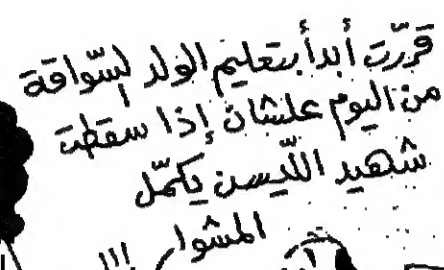 قررّت أبدأ بتعليم الولد لسّواقة
من اليوم علشان إذا سقطت
شهيد اللّيسن يكمّل
المشوار !!!